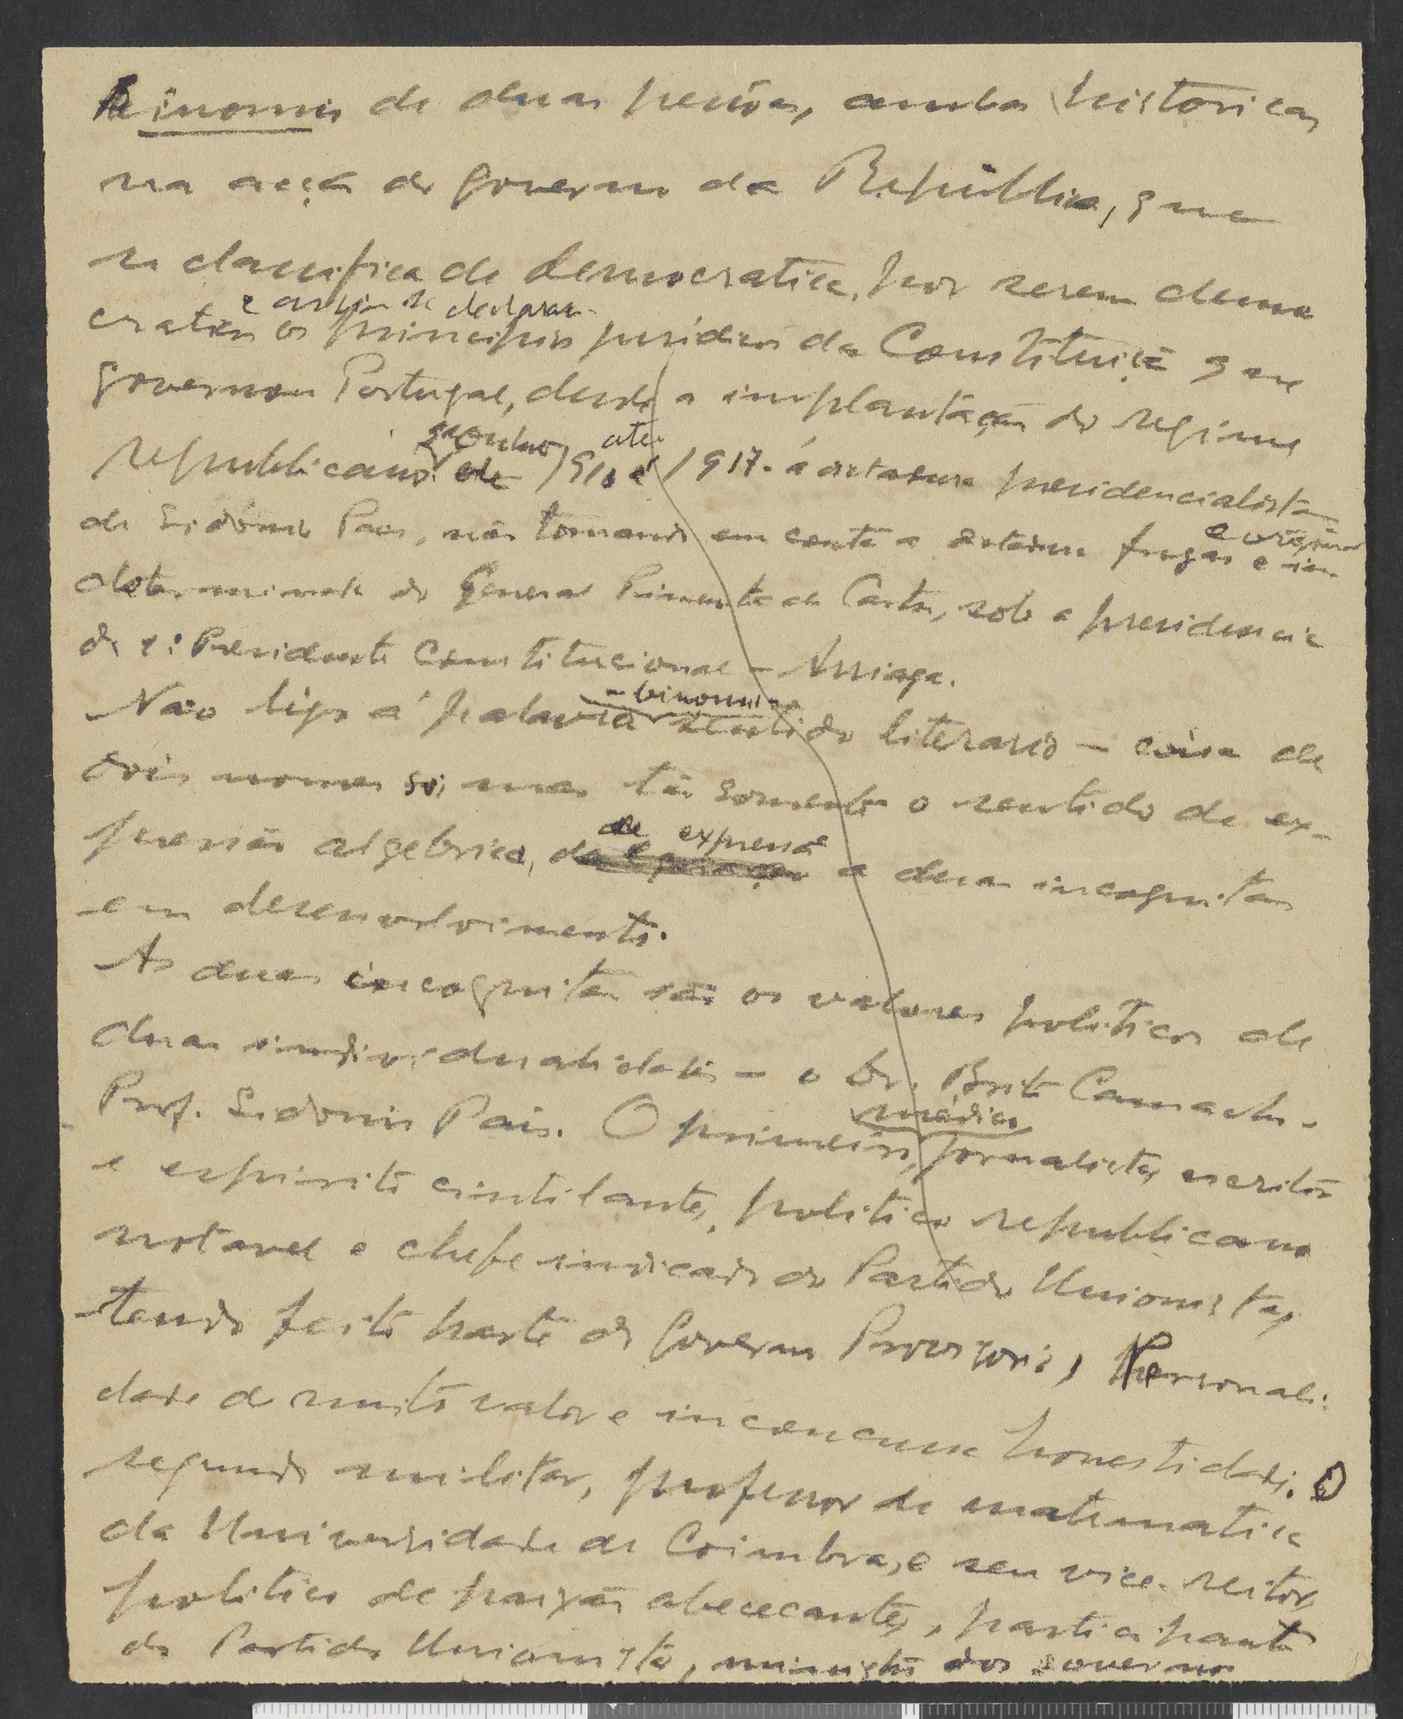 Binomio de duas pessôas, ambas historicas
na acçã do governo da Republica, que
se classifica de democratica, por serem demo
e assim se declarar
craticos os principios juridicos da Constituiçã que
governou Portugal, desde a implantação do regime
outubro até
republicano de 1910 a 1917. á dictadura presidencialista
de Sidónio Pais, não tomando em conta a ditadura fugas e in
determinada do General Pimenta de Castro, sob a presidencia
do 1º Presidente Constitucional - Arriaga.
- binomio
Não ligo á palavra sentido literario - coisa de
dois nomes só; mas tão somente o sentido de ex-
de expressã
pressão algebrica, de equação a duas incognitas
em desenvolvimento.
As duas incognitas são os valores politicos de
duas individualidades - o Dr. Brito Camacho -
Prof. Sidonio Pais. O primeiro,
médico
jornalista, escritor
e espirito cintilante, politico republicano
notavel e chefe indicado do Partido Unionista,
tendo feito parte do Governo Provisorio, Personali-
dade de muito valor e inconcussa honestidade. O
segundo militar, professor de matematica
da Universidade de Coimbra, e seu vice-reitor,
politico de paixão obcecante, participante
do Partido Unionista, ministro dos governos